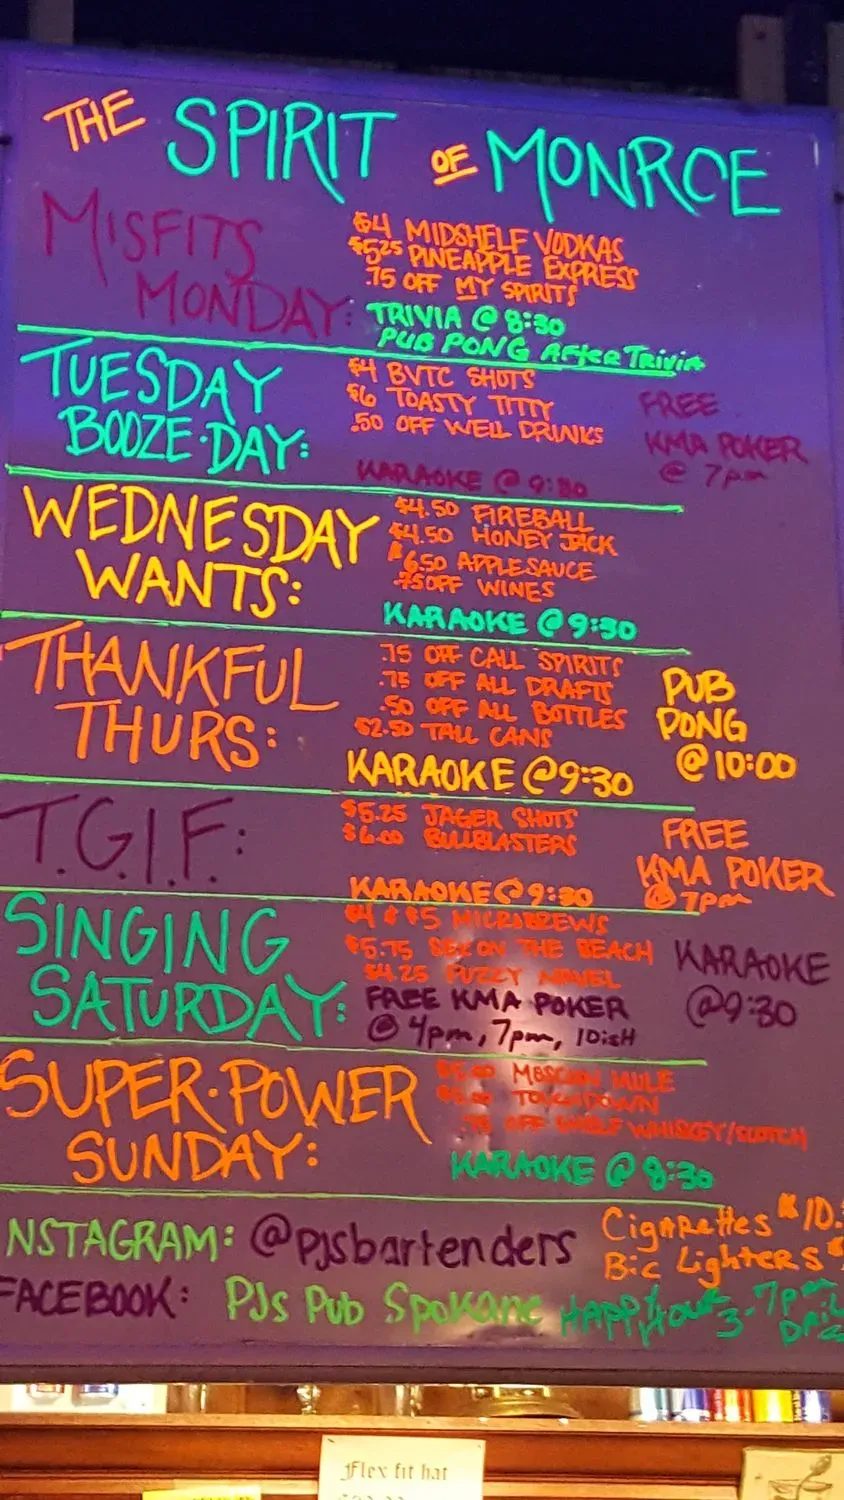 THE SPIRIT OF MONROE
MISFITS
MONDAY:
$4 MIDSHELF VODKAS
$5.25 PINEAPPLE EXPRESS
.75 OFF MY SPIRITS
TRIVIA @ 8:30
PUB PONG After Trivia
TUESDAY
BOOZE·DAY:
$4 BVTC SHOTS
$6 TOASTY TITTY
.50 OFF WELL DRINKS
KARAOKE @ 9:30
FREE
KMA POKER
@ 7pm
WEDNESDAY
WANTS:
$4.50 FIREBALL
$4.50 HONEY JACK
$6.50 APPLESAUCE
.75 OFF WINES
KARAOKE @ 9:30
THANKFUL
THURS:
.75 OFF CALL SPIRITS
.75 OFF ALL DRAFTS
.50 OFF ALL BOTTLES
$2.50 TALL CANS
KARAOKE @ 9:30
PUB
PONG
@ 10:00
T.G.I.F.:
$5.25 JAGER SHOTS
$6.00 BULLBLASTERS
KARAOKE @ 9:30
FREE
KMA POKER
@ 7pm
SINGING
SATURDAY:
$4 & $5 MICROBREWS
$5.75 SEX ON THE BEACH
$4.25 FUZZY NAVEL
FREE KMA POKER
@ 4pm, 7pm, 10ish
KARAOKE
@9:30
SUPER·POWER
SUNDAY:
MOSCOW MULE
TOUCHDOWN
OFF SHELF WHISKEY/SCOTCH
KARAOKE @ 8:30
NSTAGRAM: @pjsbartenders
FACEBOOK: PJs Pub Spokane
Cigarettes $10.
Bic Lighters $
HAPPY HOUR 3-7pm
Flex fit hat